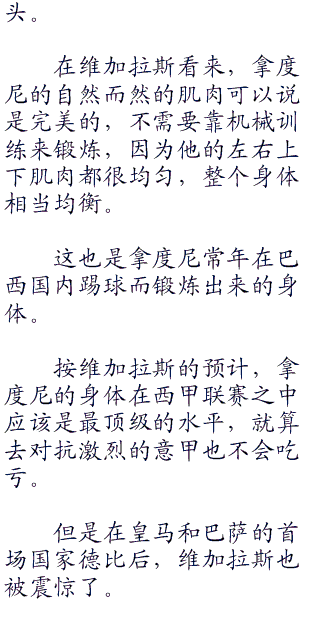 头。
在维加拉斯看来，拿度
尼的自然而然的肌肉可以说
是完美的，不需要靠机械训
练来锻炼，因为他的左右上
下肌肉都很均匀，整个身体
相当均衡。
这也是拿度尼常年在巴
西国内踢球而锻炼出来的身
体。
按维加拉斯的预计，拿
度尼的身体在西甲联赛之中
应该是最顶级的水平，就算
去对抗激烈的意甲也不会吃
亏。
但是在皇马和巴萨的首
场国家德比后，维加拉斯也
被震惊了。